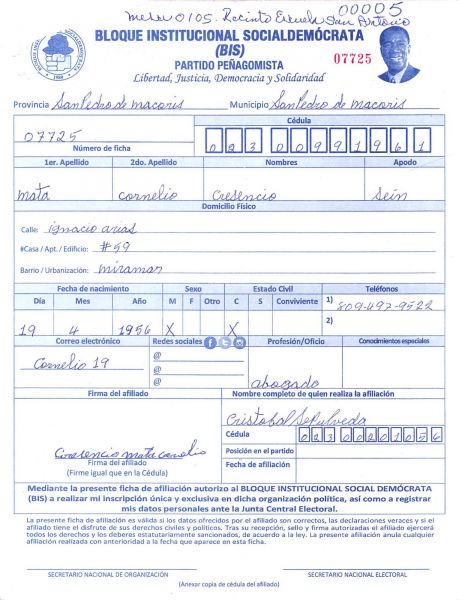 00005
Mesa 0105. Recinto Escuela San Antonio
BLOQUE INSTITUCIONAL SOCIALDEMÓCRATA
(BIS)
07725
PARTIDO PEÑAGOMISTA
Libertad, Justicia, Democracia y Solidaridad
Provincia San Pedro de macoris Municipio San Pedro de macoris
07725
Número de ficha
Cédula
023 0099196 1
1er. Apellido 2do. Apellido Nombres Apodo
mata cornelio Cresencio Sein
Domicilio Físico
Calle: ignacio arias
#Casa / Apt. / Edificio: #59
Barrio / Urbanización: miramar
Fecha de nacimiento Sexo Estado Civil Teléfonos
Día Mes Año M F Otro C S Conviviente 1) 809-497-9522
2)
19 4 1956 X X
Correo electrónico Redes sociales Profesión/Oficio Conocimientos especiales
Cornelio 19 @ @ @ abogado
Firma del afiliado Nombre completo de quien realiza la afiliación
Cristobal Sepulveda
Cédula 02300201056
Cresencio mata cornelio
Posición en el partido
Firma del afiliado
Fecha de afiliación
(Firme igual que en la Cédula)
Mediante la presente ficha de afiliación autorizo al BLOQUE INSTITUCIONAL SOCIAL DEMÓCRATA
(BIS) a realizar mi inscripción única y exclusiva en dicha organización política, así como a registrar
mis datos personales ante la Junta Central Electoral.
La presente ficha de afiliación es válida si los datos ofrecidos por el afiliado son correctos, las declaraciones veraces y si el
afiliado tiene el disfrute de sus derechos civiles y políticos. Tras su recepción, sello y firma autorizadas el afiliado ejercerá
todos los derechos y los deberes estatutariamente sancionados, de acuerdo a la ley. La presente afiliación anula cualquier
afiliación realizada con anterioridad a la fecha que aparece en esta ficha.
SECRETARIO NACIONAL DE ORGANIZACIÓN SECRETARIO NACIONAL ELECTORAL
(Anexar copia de cédula del afiliado)